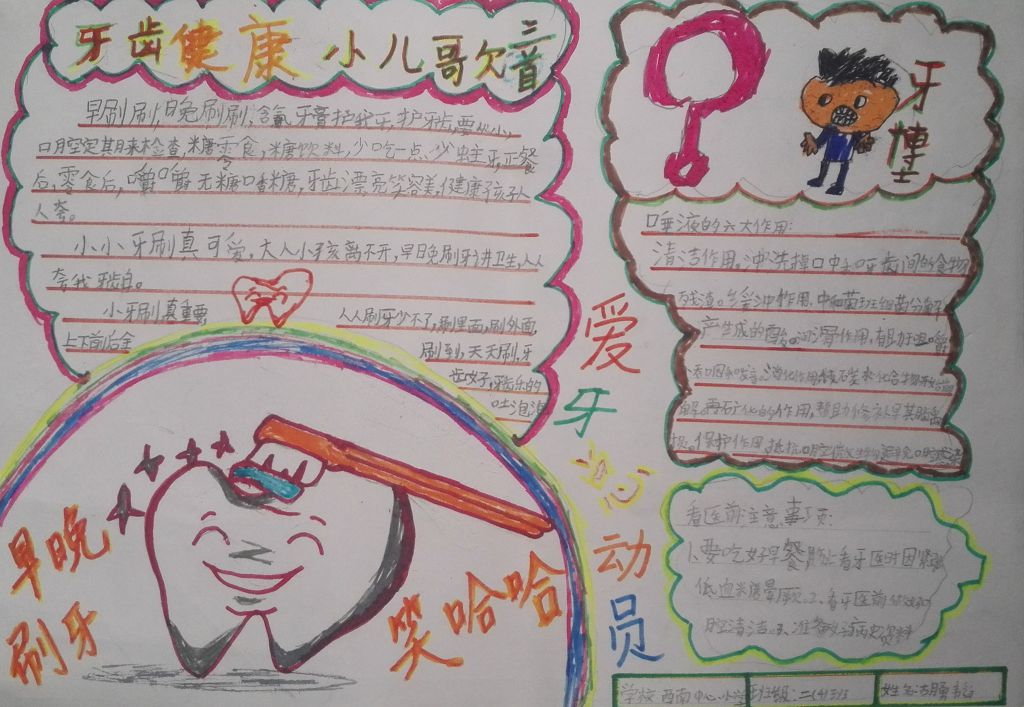 牙齿健康 小儿歌欠音
早刷刷,晚刷刷,含氟牙膏护我牙,护牙齿,要从小,
口腔定期来检查,糖零食,糖饮料,少吃一点、少蛀牙,正餐
后,零食后,嚼嚼无糖口香糖,牙齿漂亮笑容美,健康孩子人
人夸。
小小牙刷真可爱,大人小孩离不开,早日晚刷牙讲卫生,人人
夸我牙齿白。
小牙刷真重要
上下前后全
人人刷牙少不了,刷里面,刷外面,
刷到,天天刷,牙
齿好,牙齿乐的
吐泡泡
早晚
刷牙
笑哈哈
爱牙总动员
牙博士
唾液的六大作用:
清洁作用,冲洗掉口中头口牙齿间的食物
残渣。
产生成的酸。润滑作用,帮助
解,再矿化的作用,帮助修补早期龋齿
保护作用,抵抗口腔微生物
看医前注意事项:
1、要吃好早餐防止看牙医时因紧张
低血糖晕厥、2、看牙医前做好口
腔清洁。3、准备好病史资料
学校 西南中心小学
班级:二(4)班
姓名